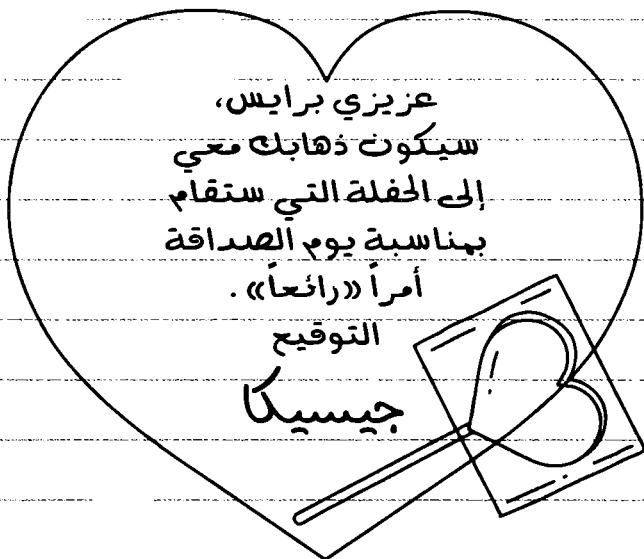 عزيزي برايس،
سيكون ذهابك معي
إلى الحفلة التي ستقام
بمناسبة يوم الصداقة
أمراً «رائعاً».
التوقيع
جيسيكا